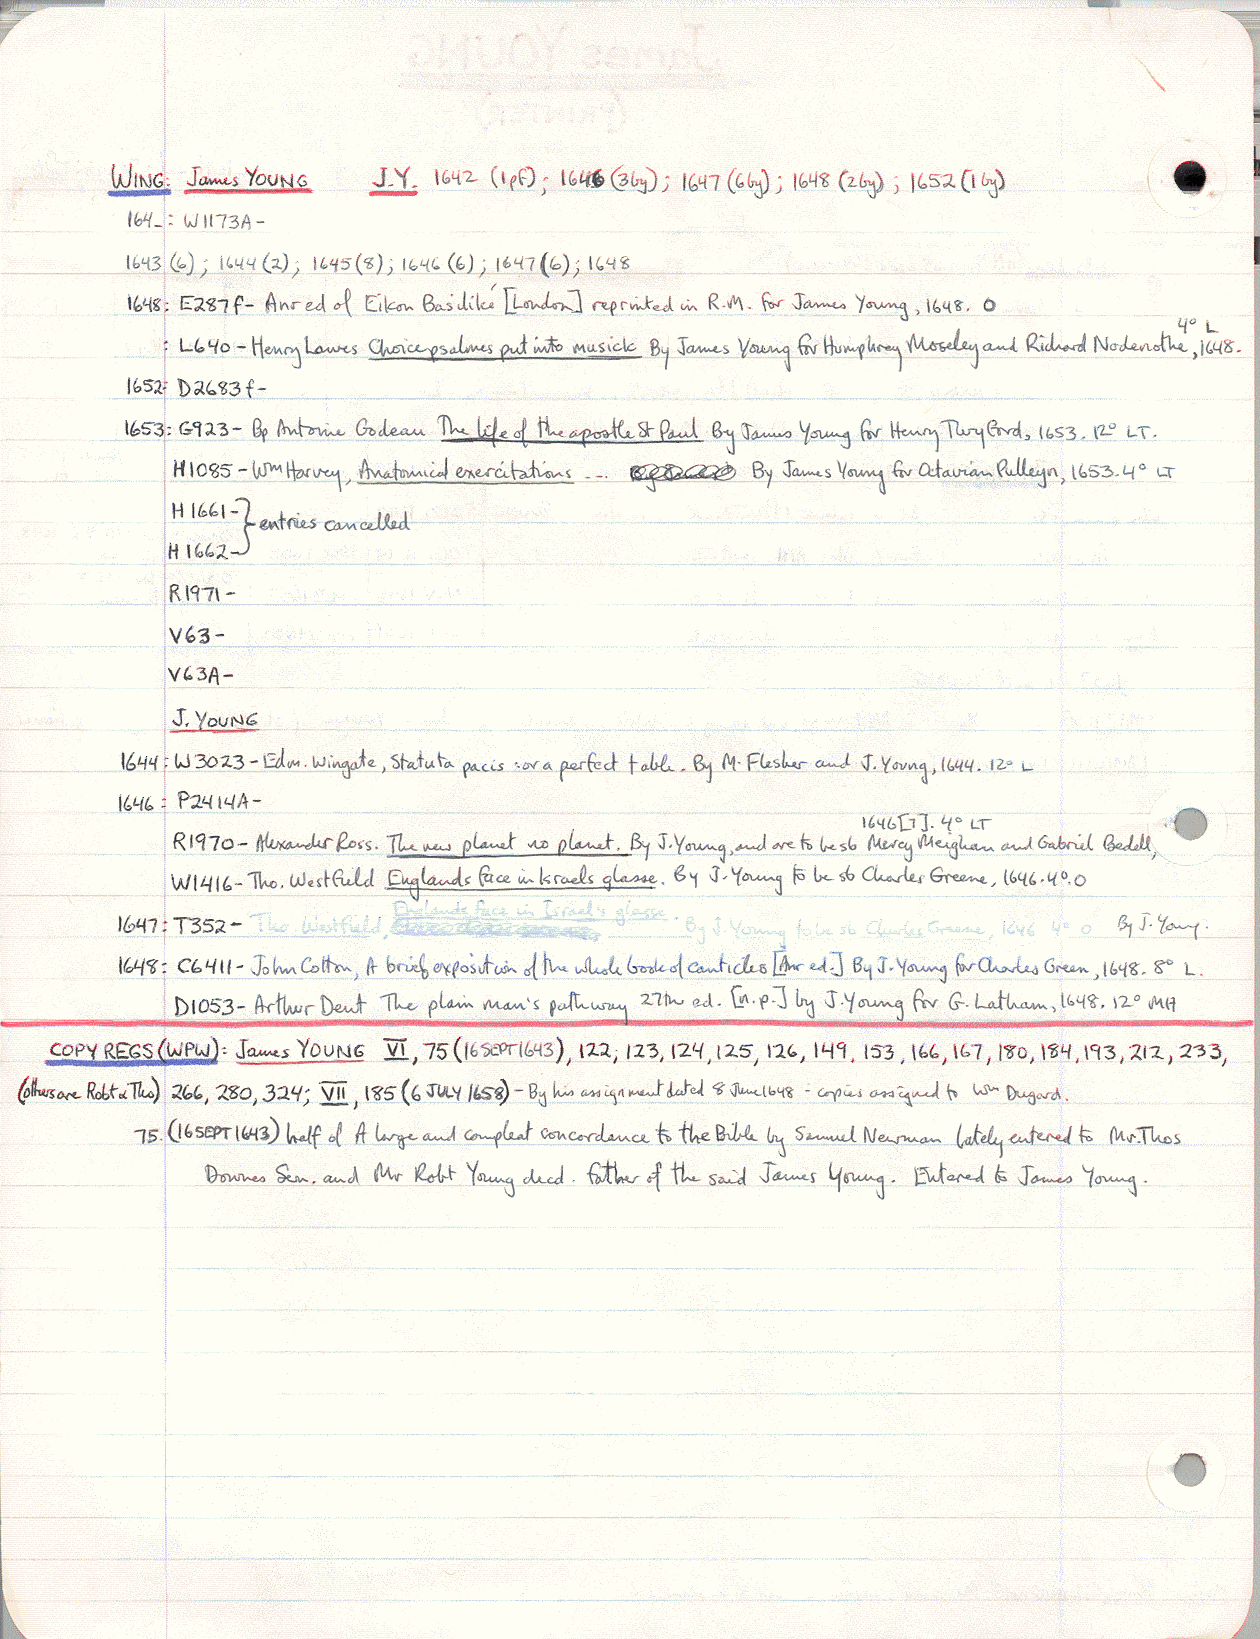 WING: James YOUNG J.Y. 1642 (1pf); 1646 (3by); 1647 (6by); 1648 (2by); 1652 (1by)
164_: W1173A-
1643 (6); 1644 (2); 1645 (8); 1646 (6); 1647 (6); 1648
1648: E287f- Anr ed of Eikon Basiliké [London] reprinted in R.M. for James Young, 1648. O
4° L
: L640 - Henry Lawes Choice psalmes put into musick By James Young for Humphrey Moseley and Richard Wodenothe, 1648.
1652: D2683f-
1653: G923- Bp Antoine Godeau The life of the apostle St Paul By James Young for Henry Twyford, 1653. 12° LT.
H1085 - Wm Harvey, Anatomical exercitations ... By James Young for Octavian Pulleyn, 1653. 4° LT
H1661-
} entries cancelled
H1662-
R1971-
V63-
V63A-
J. YOUNG
1644: W3023 - Edm. Wingate, Statuta pacis: or a perfect table. By M. Flesher and J. Young, 1644. 12° L
1646: P2414A-
1646[7]. 4° LT
R1970 - Alexander Ross. The new planet no planet. By J. Young, and are to be sb Mercy Meighan and Gabriel Bedell,
W1416 - Tho. Westfield Englands face in Israels glasse. By J. Young to be sb Charles Greene, 1646. 4°. O
Englands face in Israel's glasse.
1647: T352 - Tho. Westfield, By J. Young to be sb Charles Greene, 1646 4° O By J. Young.
1648: C6411 - John Cotton, A brief exposition of the whole book of canticles [Anr ed.] By J. Young for Charles Green, 1648. 8° L.
D1053 - Arthur Dent The plain man's pathway 27th ed. [n.p.] by J. Young for G. Latham, 1648. 12° MH
COPY REGS (WPW): James YOUNG VI, 75 (16 SEPT 1643), 122, 123, 124, 125, 126, 149, 153, 166, 167, 180, 184, 193, 212, 233,
(others are Robt & Tho) 266, 280, 324; VII, 185 (6 JULY 1658) - By his assignment dated 8 June 1648 - copies assigned to Wm Dugard.
75. (16 SEPT 1643) half of A large and compleat concordance to the Bible by Samuel Newman lately entered to Mr. Thos
Downes Sen. and Mr Robt Young decd. father of the said James Young. Entered to James Young.